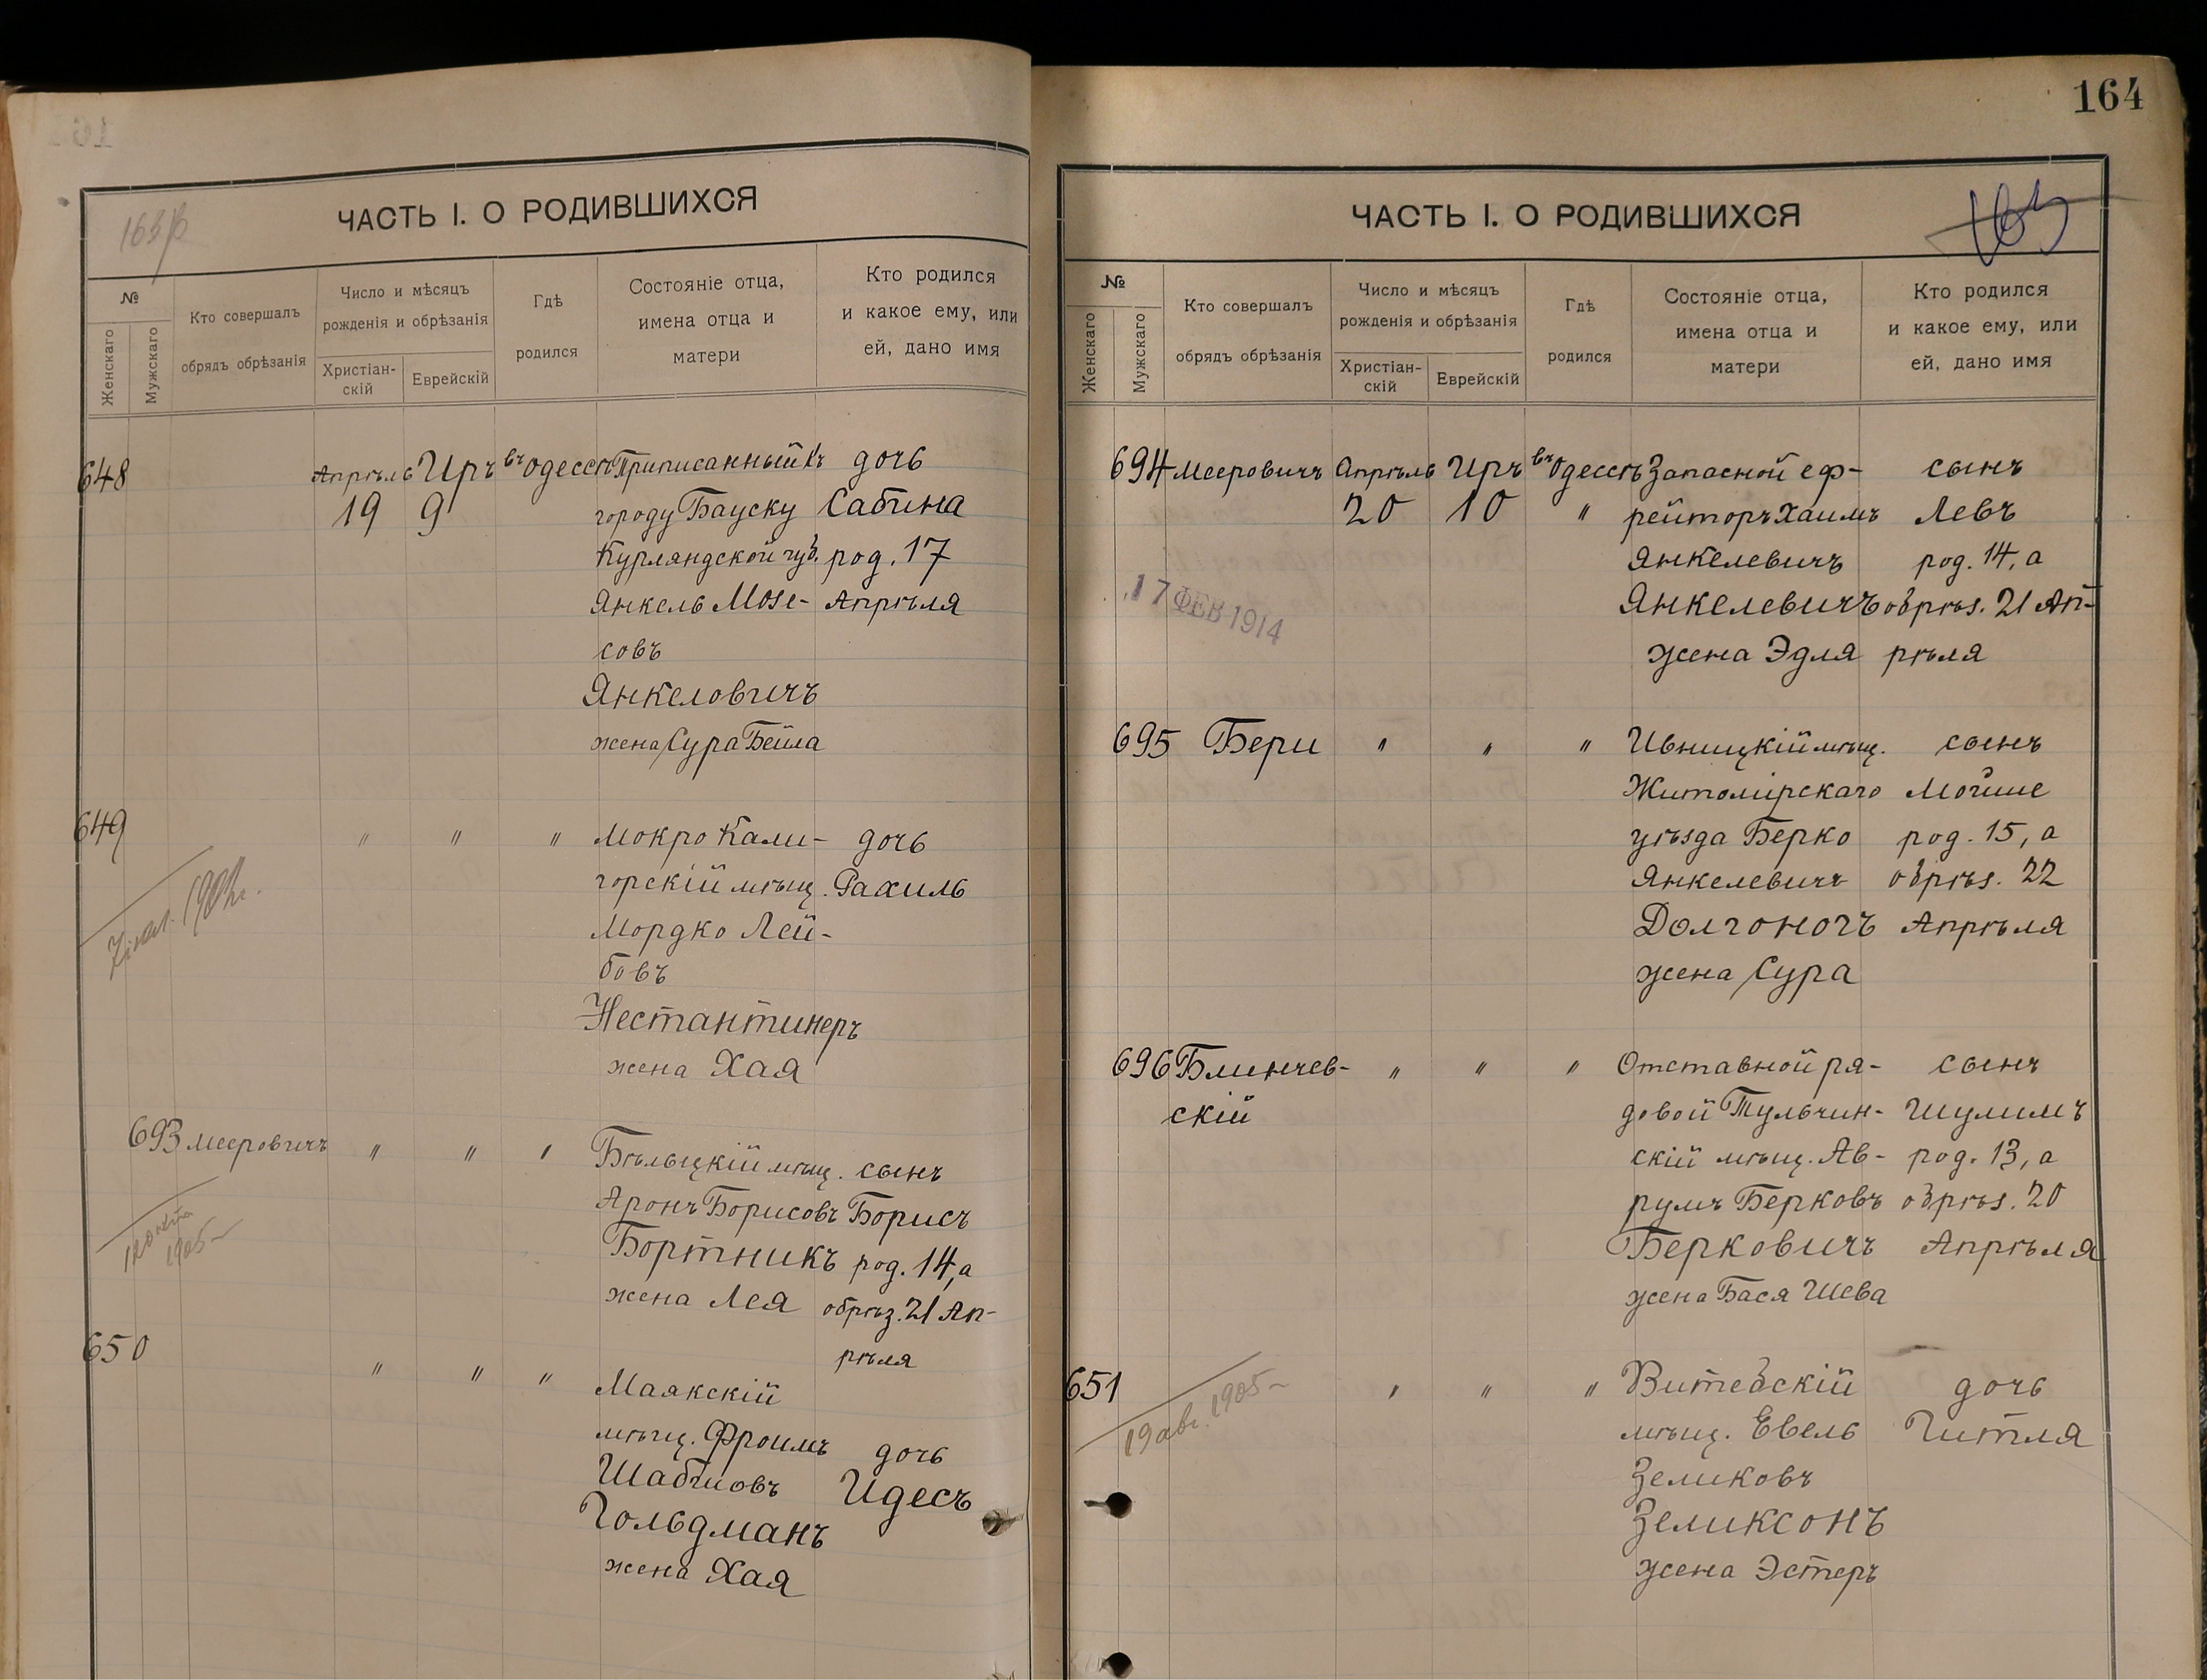 164
ЧАСТЬ I. О РОДИВШИХСЯ
№
Женскаго
Мужскаго
Кто совершалъ
обрядъ обрѣзанія
Число и мѣсяцъ
рожденія и обрѣзанія
Христіан-
скій
Еврейскій
Гдѣ
родился
Состояніе отца,
имена отца и
матери
Кто родился
и какое ему, или
ей, дано имя
648 Апрѣль Иръ въ Одессѣ Приписанный къ дочь
19 9 городу Бауску Сабина
Курляндской губ. род. 17
Янкель Мозе- Апрѣля
совъ
Янкеловичъ
жена Сура Бейла
649 " " " Мокро Кали- дочь
горскій мѣщ. Рахиль
Мордко Лей-
бовъ
Нестантинеръ
жена Хая
693 Мееровичъ " " " Бѣльцкій мѣщ. сынъ
Аронъ Борисовъ Борисъ
Бортникъ род. 14, а
жена Лея обрѣз. 21 Ап-
рѣля
1905
650 " " " Маякскій
мѣщ. Фроимъ дочь
Шабшовъ Идесъ
Гольдманъ
жена Хая
ЧАСТЬ I. О РОДИВШИХСЯ
№
Женскаго
Мужскаго
Кто совершалъ
обрядъ обрѣзанія
Число и мѣсяцъ
рожденія и обрѣзанія
Христіан-
скій
Еврейскій
Гдѣ
родился
Состояніе отца,
имена отца и
матери
Кто родился
и какое ему, или
ей, дано имя
694 Мееровичъ Апрѣль Иръ въ Одессѣ Запасной еф- сынъ
20 10 " рейторъ Хаимъ Левъ
Янкелевичъ род. 14, а
Янкелевичъ обрѣз. 21 Ап-
жена Эдля рѣля
17 ФЕВ 1914
695 Бери " " " Ивницкій мѣщ. сынъ
Житомірскаго Мойше
уѣзда Берко род. 15, а
Янкелевичъ обрѣз. 22
Долгоночъ Апрѣля
жена Сура
696 Блинчев- " " " Отставной ря- сынъ
скій довой Тульчин- Шулимъ
скій мѣщ. Ав- род. 13, а
румъ Берковъ обрѣз. 20
Берковичъ Апрѣля
жена Бася Шева
651 " " " Витебскій дочь
мѣщ. Евель Гитля
Зеликовъ
Зеликсонъ
жена Эстеръ
19 авг. 1905